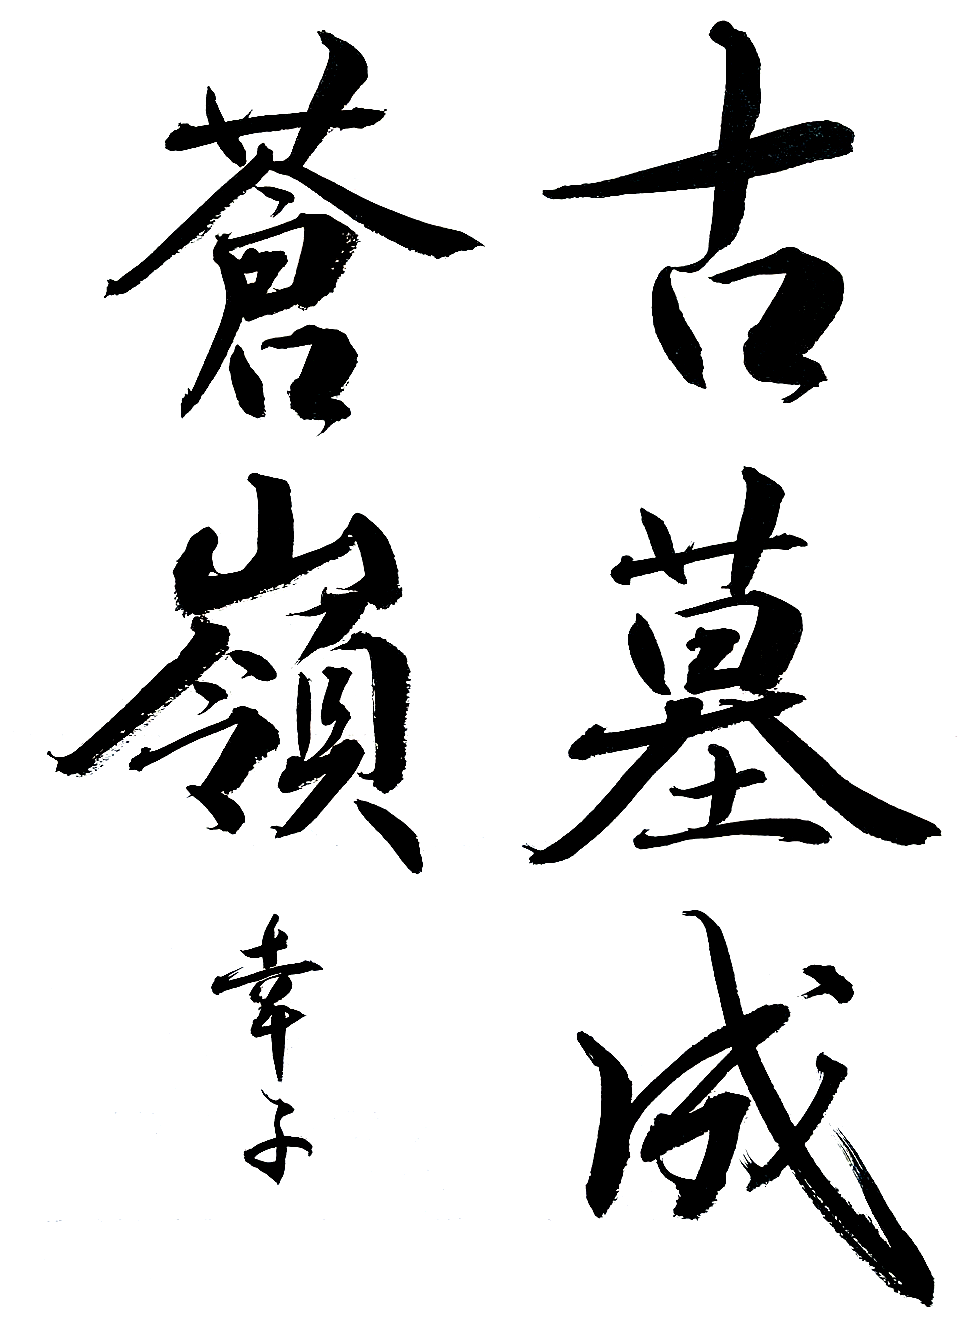 古墓成
蒼嶺
幸子